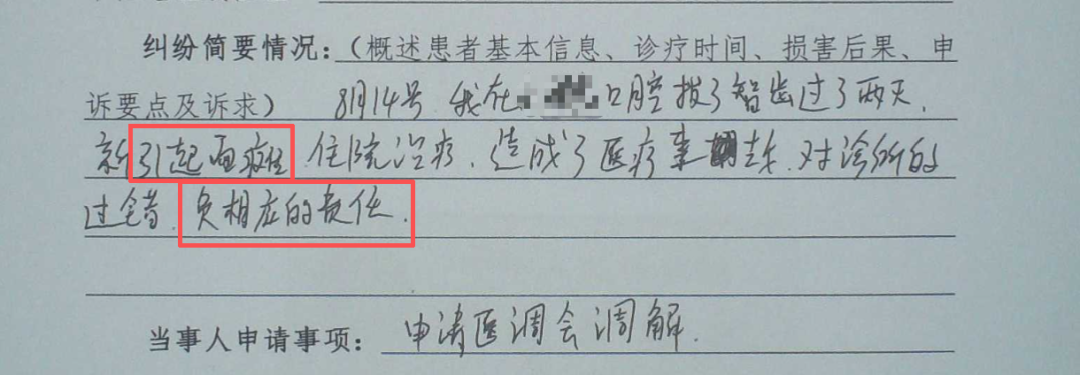 纠纷简要情况：（概述患者基本信息、诊疗时间、损害后果、申
诉要点及诉求） 8月14号 我在 口腔拔了智齿过了两天，
引起面瘫 住院治疗，造成了医疗事 对诊所的
过错，负相应的责任.
当事人申请事项： 申请医调会调解.